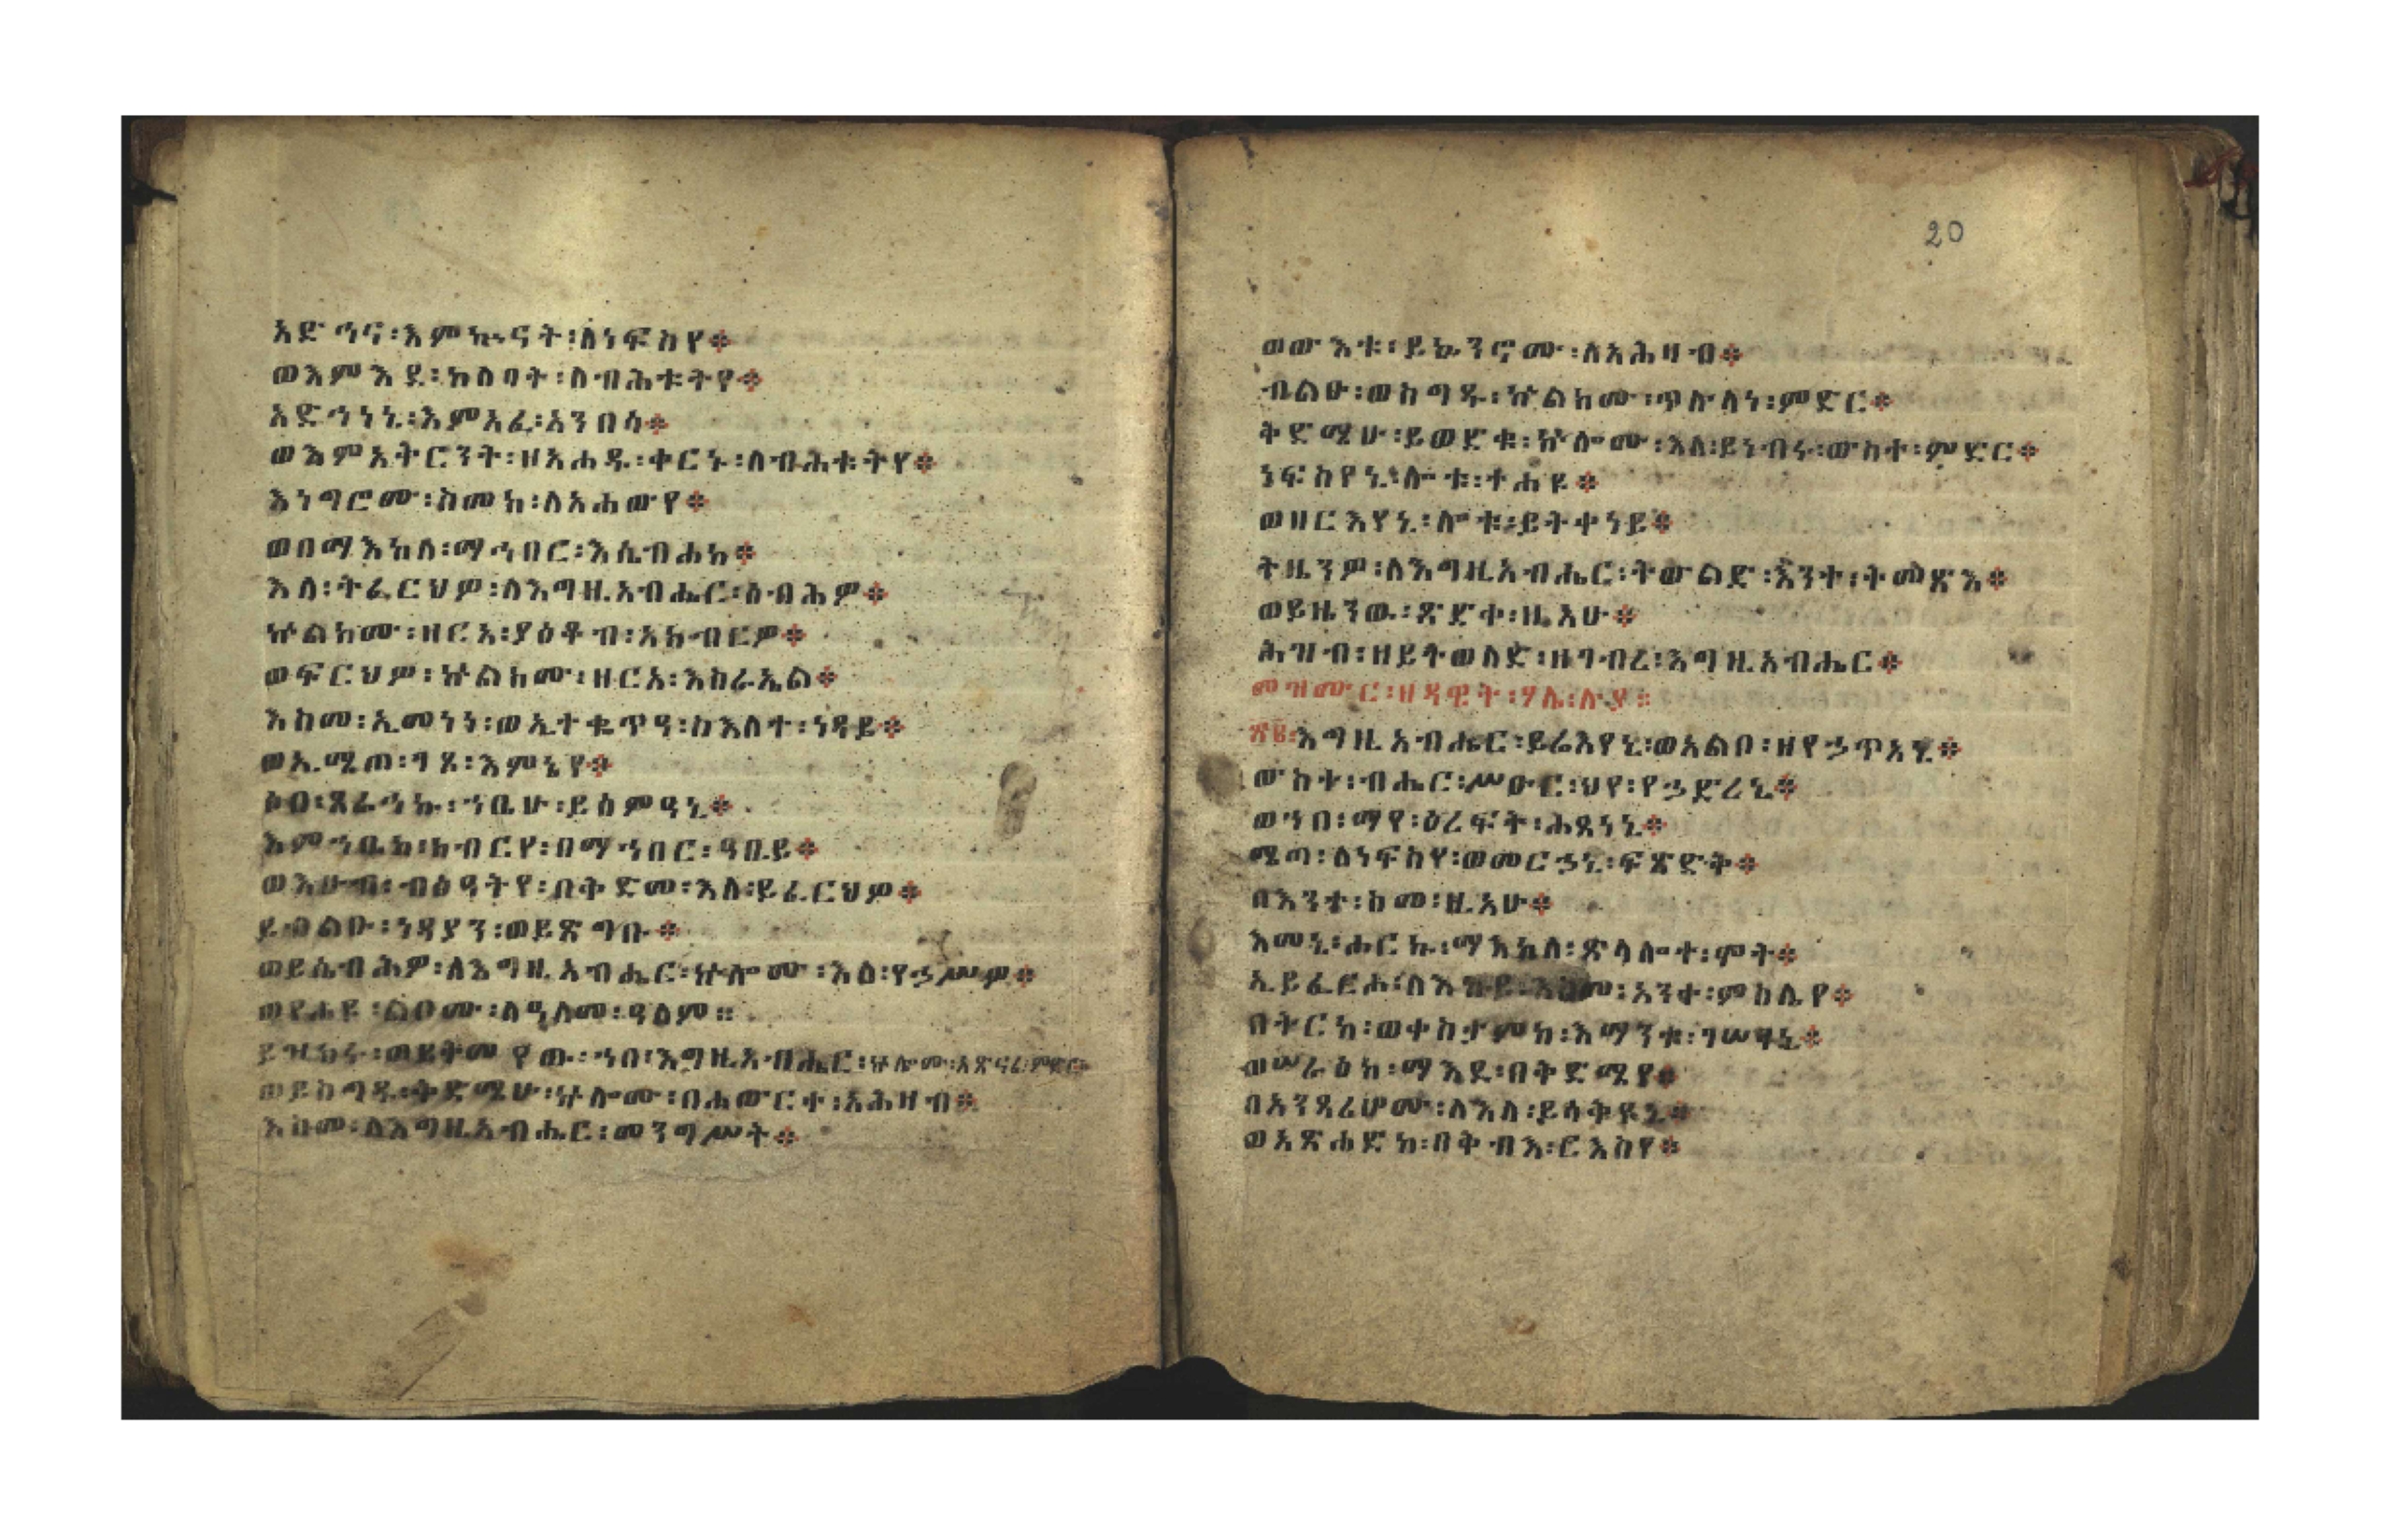 አድኅና፡እምኲናት፡ለነፍስየ፨
ወእምእደ፡ከለባት፡ለብሕቱትየ፨
አድኅነኒ፡እምአፈ፡አንበሳ፨
ወእምአትርንት፡ዘአሐዱ፡ቀርኑ፡ለብሕቱትየ፨
እነግሮሙ፡ስመከ፡ለአሐውየ፨
ወበማእከለ፡ማኅበር፡እሴብሐከ፨
እለ፡ትፈርህዎ፡ለእግዚአብሔር፡ሰብሕዎ፨
ኵልክሙ፡ዘርአ፡ያዕቆብ፡አክብርዎ፨
ወፍርህዎ፡ኵልክሙ፡ዘርአ፡እስራኤል፨
እስመ፡ኢመነነ፡ወኢተቈጥዓ፡ስእለተ፡ነዳይ፨
ወኢሜጠ፡ገጾ፡እምኔየ፨
ሶበ፡ጸራኅኩ፡ኀቤሁ፡ይሰምዓኒ፨
እምኀቤከ፡ክብርየ፡በማኅበር፡ዓቢይ፨
ወእሁብ፡ብፅዓትየ፡በቅድመ፡እለ፡ይፈርህዎ፨
ይብልዑ፡ነዳያን፡ወይጽግቡ፨
ወይሴብሕዎ፡ለእግዚአብሔር፡ኵሎሙ፡እለ፡የኃሥሥዎ፨
ወየሐዩ፡ልቦሙ፡ለዓለመ፡ዓለም።
ይዝክሩ፡ወይትመየጡ፡ኀበ፡እግዚአብሔር፡ኵሎሙ፡አጽናፈ፡ምድር፨
ወይሰግዱ፡ቅድሜሁ፡ኵሎሙ፡በሐውርተ፡አሕዛብ፨
እስመ፡ለእግዚአብሔር፡መንግሥት፨
20
ወውእቱ፡ይኴንኖሙ፡ለአሕዛብ፨
ብልዑ፡ወስግዱ፡ኵልክሙ፡ጥሉላነ፡ምድር፨
ቅድሜሁ፡ይወድቁ፡ኵሎሙ፡እለ፡ይነብሩ፡ውስተ፡ምድር፨
ነፍስየኒ፡ሎቱ፡ተሐዩ፨
ወዘርእየኒ፡ሎቱ፡ይትቀነይ፨
ትዜንዎ፡ለእግዚአብሔር፡ትውልድ፡እንተ፡ትመጽእ፨
ወይዜንዉ፡ጽድቀ፡ዚአሁ፨
ሕዝብ፡ዘይትወለድ፡ዘገብረ፡እግዚአብሔር፨
መዝሙር፡ዘዳዊት፡ሃሌ፡ሉያ።
እግዚአብሔር፡ይሬእየኒ፡ወአልቦ፡ዘየኃጥአኒ፨
ውስተ፡ብሔር፡ሥዑር፡ህየ፡የኃድረኒ፨
ወኀበ፡ማየ፡ዕረፍት፡ሐፀነኒ፨
ሜጣ፡ለነፍስየ፡ወመርኃኒ፡ፍጽድቅ፨
በእንተ፡ስመ፡ዚአሁ፨
እመኒ፡ሖርኩ፡ማእከለ፡ጽላሎተ፡ሞት፨
ኢይፈርሐ፡ለእኩይ፡እስመ፡አንተ፡ምስሌየ፨
በትርከ፡ወቀስታምከ፡እማንቱ፡ገሠፃኒ፨
ወሠራዕከ፡ማእደ፡በቅድሜየ፨
በአንጻሪሆሙ፡ለእለ፡ይሳቅዩኒ፨
ወአጽሐድከ፡በቅብእ፡ርእስየ፨